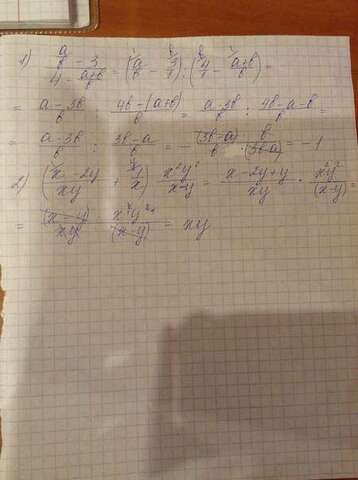 1) (a/b - 3)/(4 - (a+b)/b) = (a/b - 3/1) : (4/1 - (a+b)/b) =
= (a-3b)/b : (4b-(a+b))/b = (a-3b)/b : (4b-a-b)/b =
= (a-3b)/b : (3b-a)/b = -(3b-a)/b · b/(3b-a) = -1
2) ((x-2y)/xy + 1/x) · x²y²/(x-y) = (x-2y+y)/xy · x²y²/(x-y)
= (x-y)/xy · x²y²/(x-y) = xy